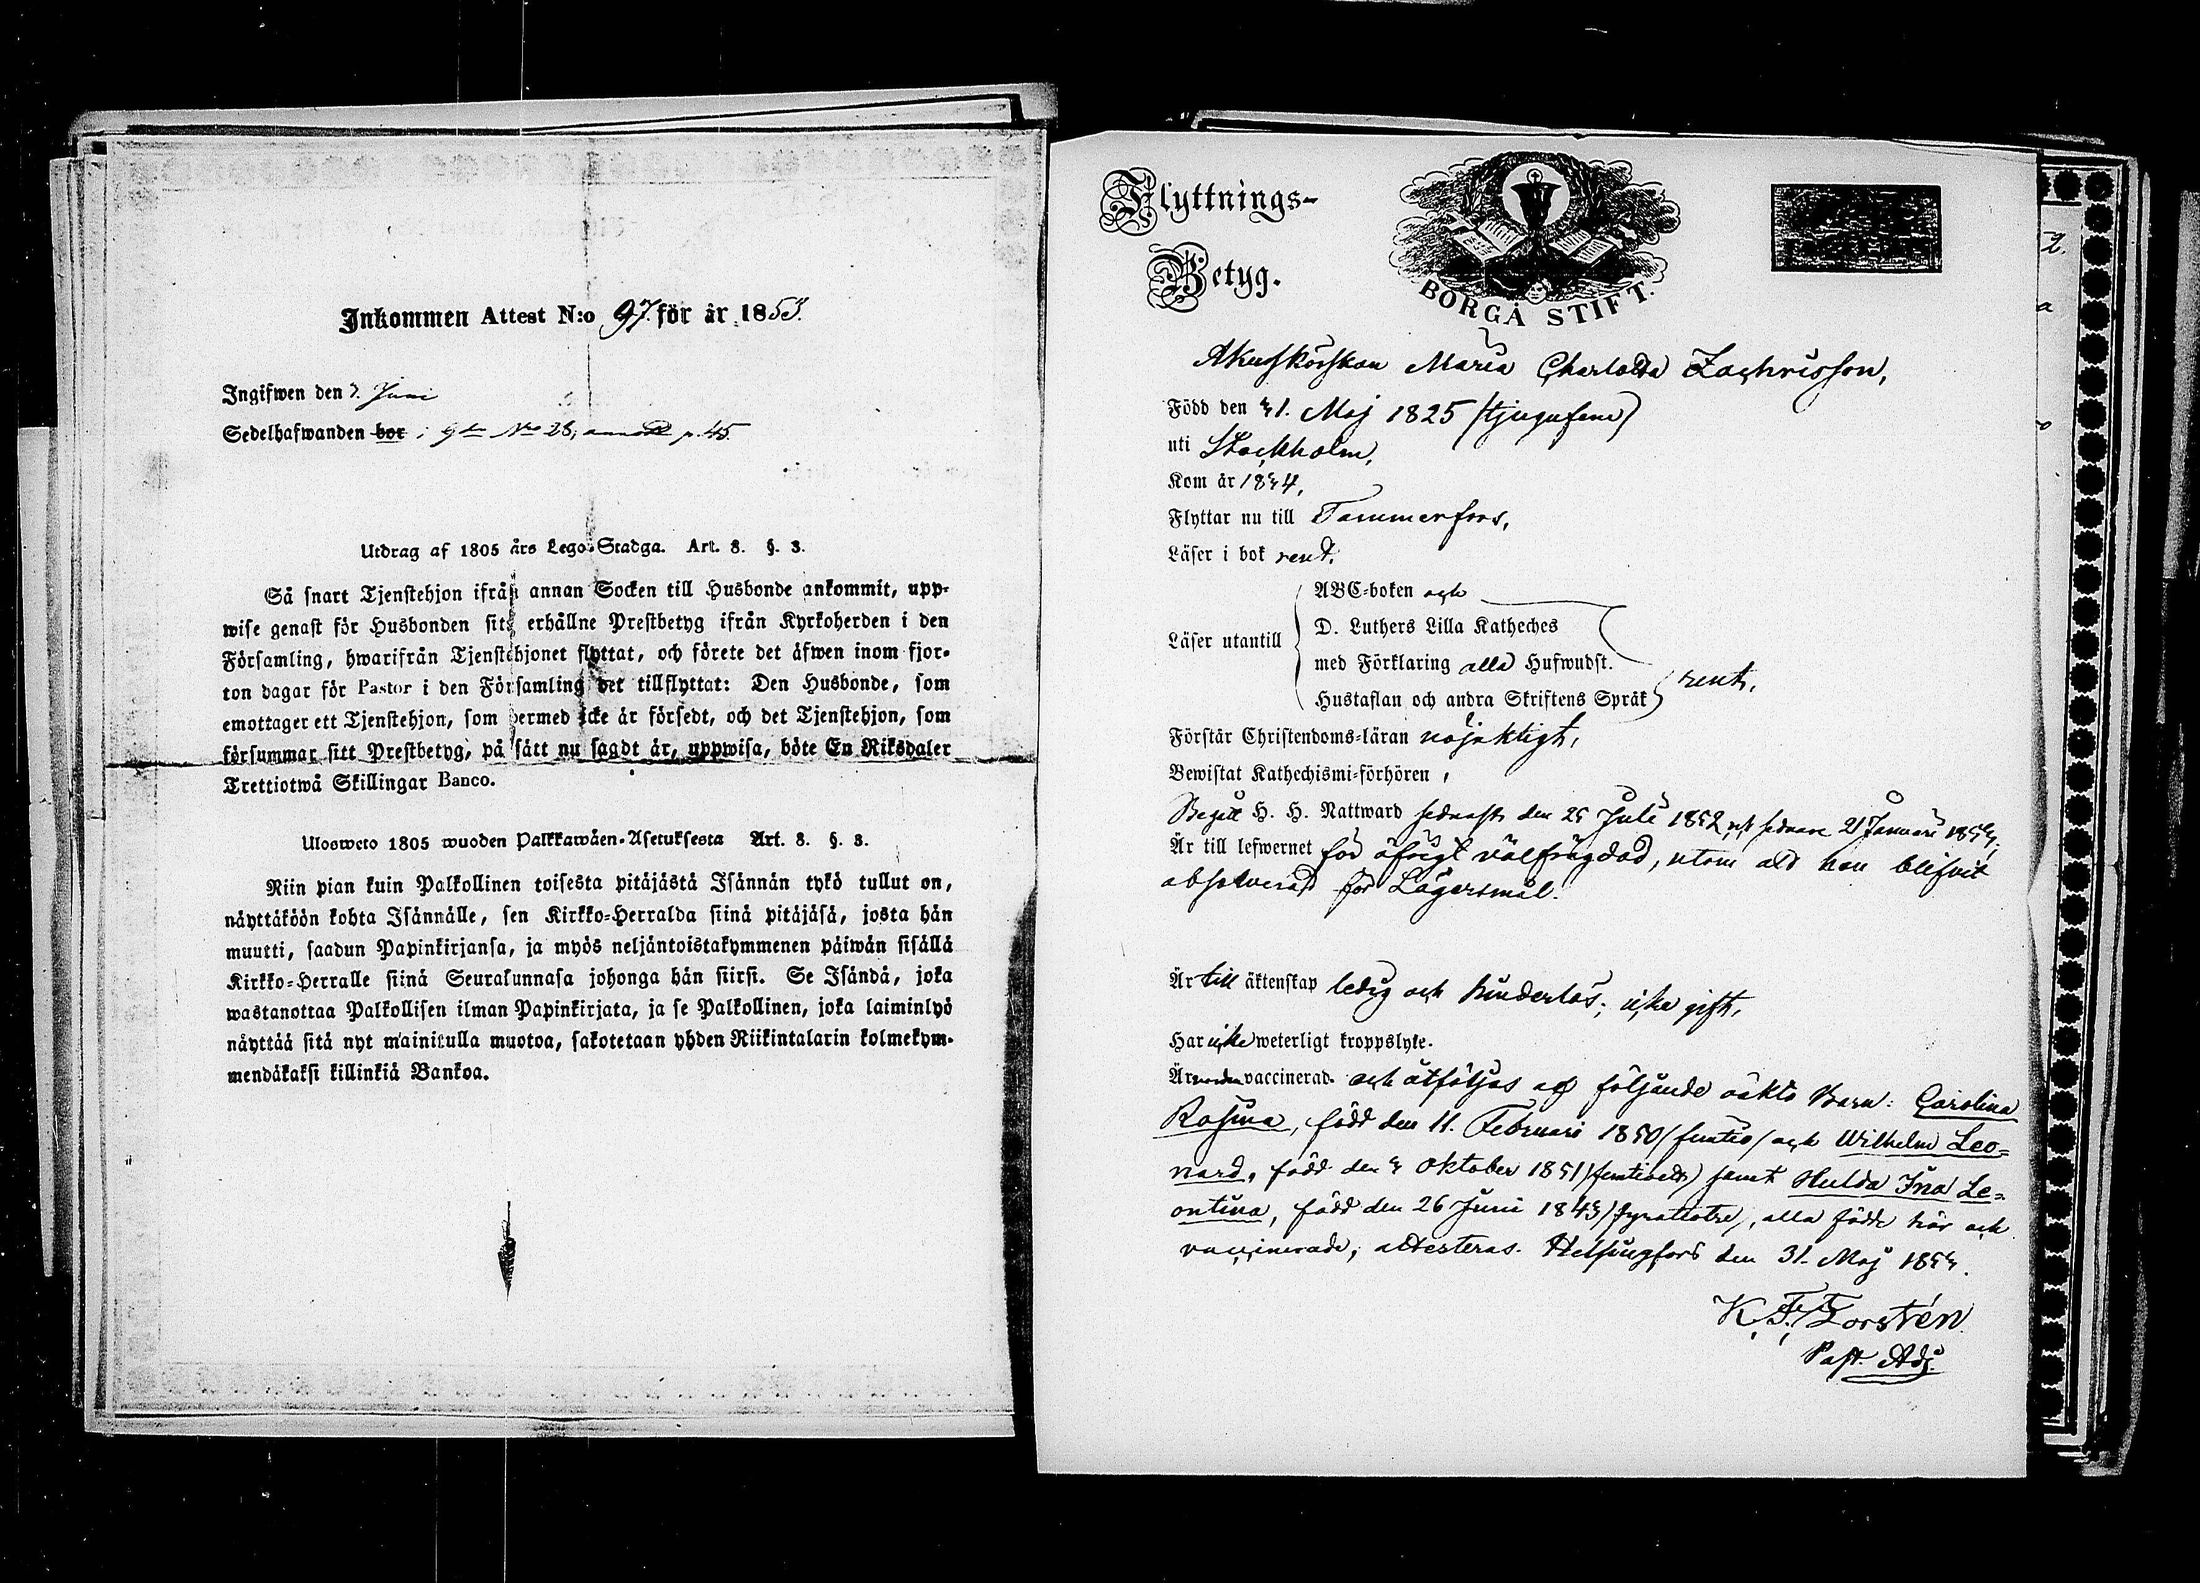 Inkommen Attest N:o 97. för år 1853.
Ingifwen den 7. Juni
Sedelhafwanden bor i gdn No 28, p. 45.
Utdrag af 1805 års Lego-Stadga. Art. 8. §. 3.
Så snart Tjenstehjon ifrån annan Socken till Husbonde ankommit, upp-
wise genast för Husbonden sitt erhållne Prestbetyg ifrån Kyrkoherden i den
Församling, hwarifrån Tjenstehjonet flyttat, och förete det äfwen inom fjor-
ton dagar för Pastor i den Församling det tillflyttat: Den Husbonde, som
emottager ett Tjenstehjon, som dermed icke är försedt, och det Tjenstehjon, som
försummar sitt Prestbetyg, på sätt nu sagdt är, uppwisa, böte En Riksdaler
Trettiotwå Skillingar Banco.
Ulosweto 1805 wuoden Palkkawäen-Asetuksesta Art. 8. §. 3.
Niin pian kuin Palkollinen toisesta pitäjästä Isännän tykö tullut on,
näyttäköön kohta Isännälle, sen Kirkko-Herralda siinä pitäjäsä, josta hän
muutti, saadun Papinkirjansa, ja myös neljäntoistakymmenen päiwän sisällä
Kirkko-Herralle siinä Seurakunnasa johonga hän siirsi. Se Isändä, joka
wastanottaa Palkollisen ilman Papinkirjata, ja se Palkollinen, joka laiminlyö
näyttää sitä nyt mainitulla muotoa, sakotetaan yhden Riikintalarin kolmekym-
mendäkaksi killinkiä Bankoa.
Flyttnings-
Betyg.
BORGÅ STIFT.
Maria Charlotta Zachrisson,
Född den 31. Maj 1825 (tjugufem)
uti Stockholm,
Kom år 1834,
Flyttar nu till Tammerfors,
Läser i bok rent.
Läser utantill
ABC-boken och
D. Luthers Lilla Katheches
med Förklaring alla Hufwudst.
Hustaflan och andra Skriftens Språk
rent,
Förstår Christendoms-läran nöjaktigt,
Bewistat Kathechismi-förhören,
Begått H. H. Nattward sednast den 25 Juli 1852, sednare 21 Januari 1853,
Är till lefwernet för öfrigt välfrägdad, utom att hon blifvit
absolverad för Lägersmål.
Är till äktenskap ledig och hinderlös; icke gift,
Har icke weterligt kroppslyte.
Är vorden vaccinerad och åtföljes af följande oäkta Barn: Carolina
Rosina, född den 11. Februari 1850 (femtio) och Wilhelm Leo-
nard, född den 3 Oktober 1851 (femtioett) samt Hulda Ina Le-
ontina, född den 26 Juni 1843 (fyratiotre), alla födde här och
vaccinerade, attesteras. Helsingfors den 31. Maj 1853.
K. F. Forstén.
Past. Adj.